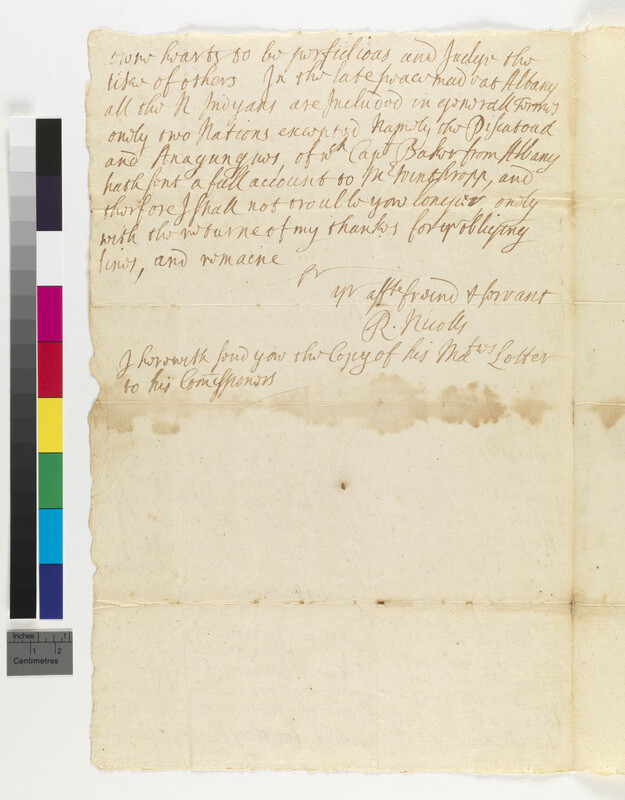 owne hearts to be perfidious and Judge the
like of others In the late peace made at Albany
all the N Indyans are Included in generall termes
onely two Nations excepted Namely the
and Anagungues, of wch Capt Baker from Albany
hath sent a full account to Mr Winthropp, and
therfore I shall not trouble you longer, onely
with the returne of my thankes for yr obliging
lines, and remaine
Sr
yr affte freind & servant
R. Nicolls
I herewith send you the Copy of his Maties Letter
to his Comissioners
Inches
1
1
2
Centimetres